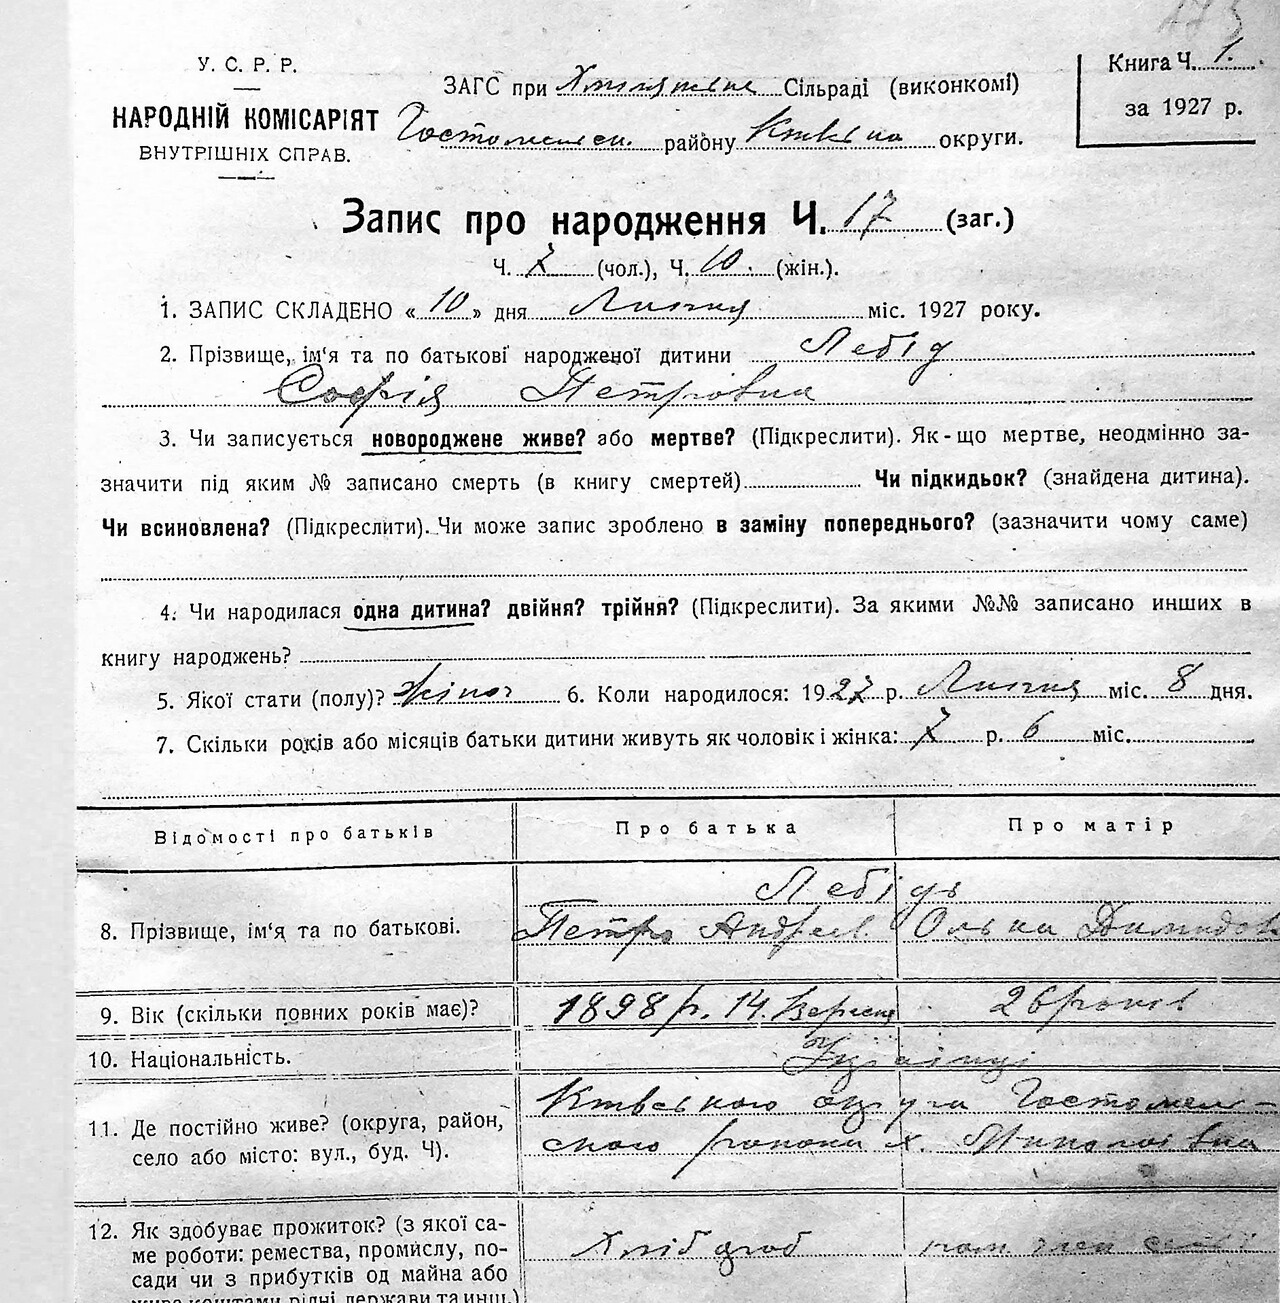 173
У. С. Р. Р.
НАРОДНІЙ КОМІСАРІЯТ
ВНУТРІШНІХ СПРАВ.
ЗАГС при Сільраді (виконкомі)
Гостомельск. району Київська округи.
Книга Ч. 1.
за 1927 р.
Запис про народження Ч. 17 (заг.)
Ч. 7 (чол.), Ч. 10. (жін.).
1. ЗАПИС СКЛАДЕНО «10» дня Липня міс. 1927 року.
2. Прізвище, ім‘я та по батькові народженої дитини Лебідь
Софія Петровна
3. Чи записується новороджене живе? або мертве? (Підкреслити). Як-що мертве, неодмінно за-
значити під яким № записано смерть (в книгу смертей) Чи підкидьок? (знайдена дитина).
Чи всиновлена? (Підкреслити). Чи може запис зроблено в заміну попереднього? (зазначити чому саме)
4. Чи народилася одна дитина? двійня? трійня? (Підкреслити). За якими №№ записано инших в
книгу народжень?
5. Якої стати (полу)? жіноч 6. Коли народилося: 1927 р. Липня міс. 8 дня.
7. Скільки років або місяців батьки дитини живуть як чоловік і жінка: 7 р. 6 міс.
Відомості про батьків Про батька Про матір
Лебідь
8. Прізвище, ім‘я та по батькові. Петро Андреев. Ольга Димидов
9. Вік (скільки повних років має)? 1898 р. 14. Вересня 26 років
10. Національність. Українці
11. Де постійно живе? (округа, район, Київського округа Гостомель-
село або місто: вул., буд. Ч). ского района х.
12. Як здобуває прожиток? (з якої са- Хлібороб
ме роботи: ремества, промислу, по-
сади чи з прибутків од майна або
живе коштами рідні держави та инш.)